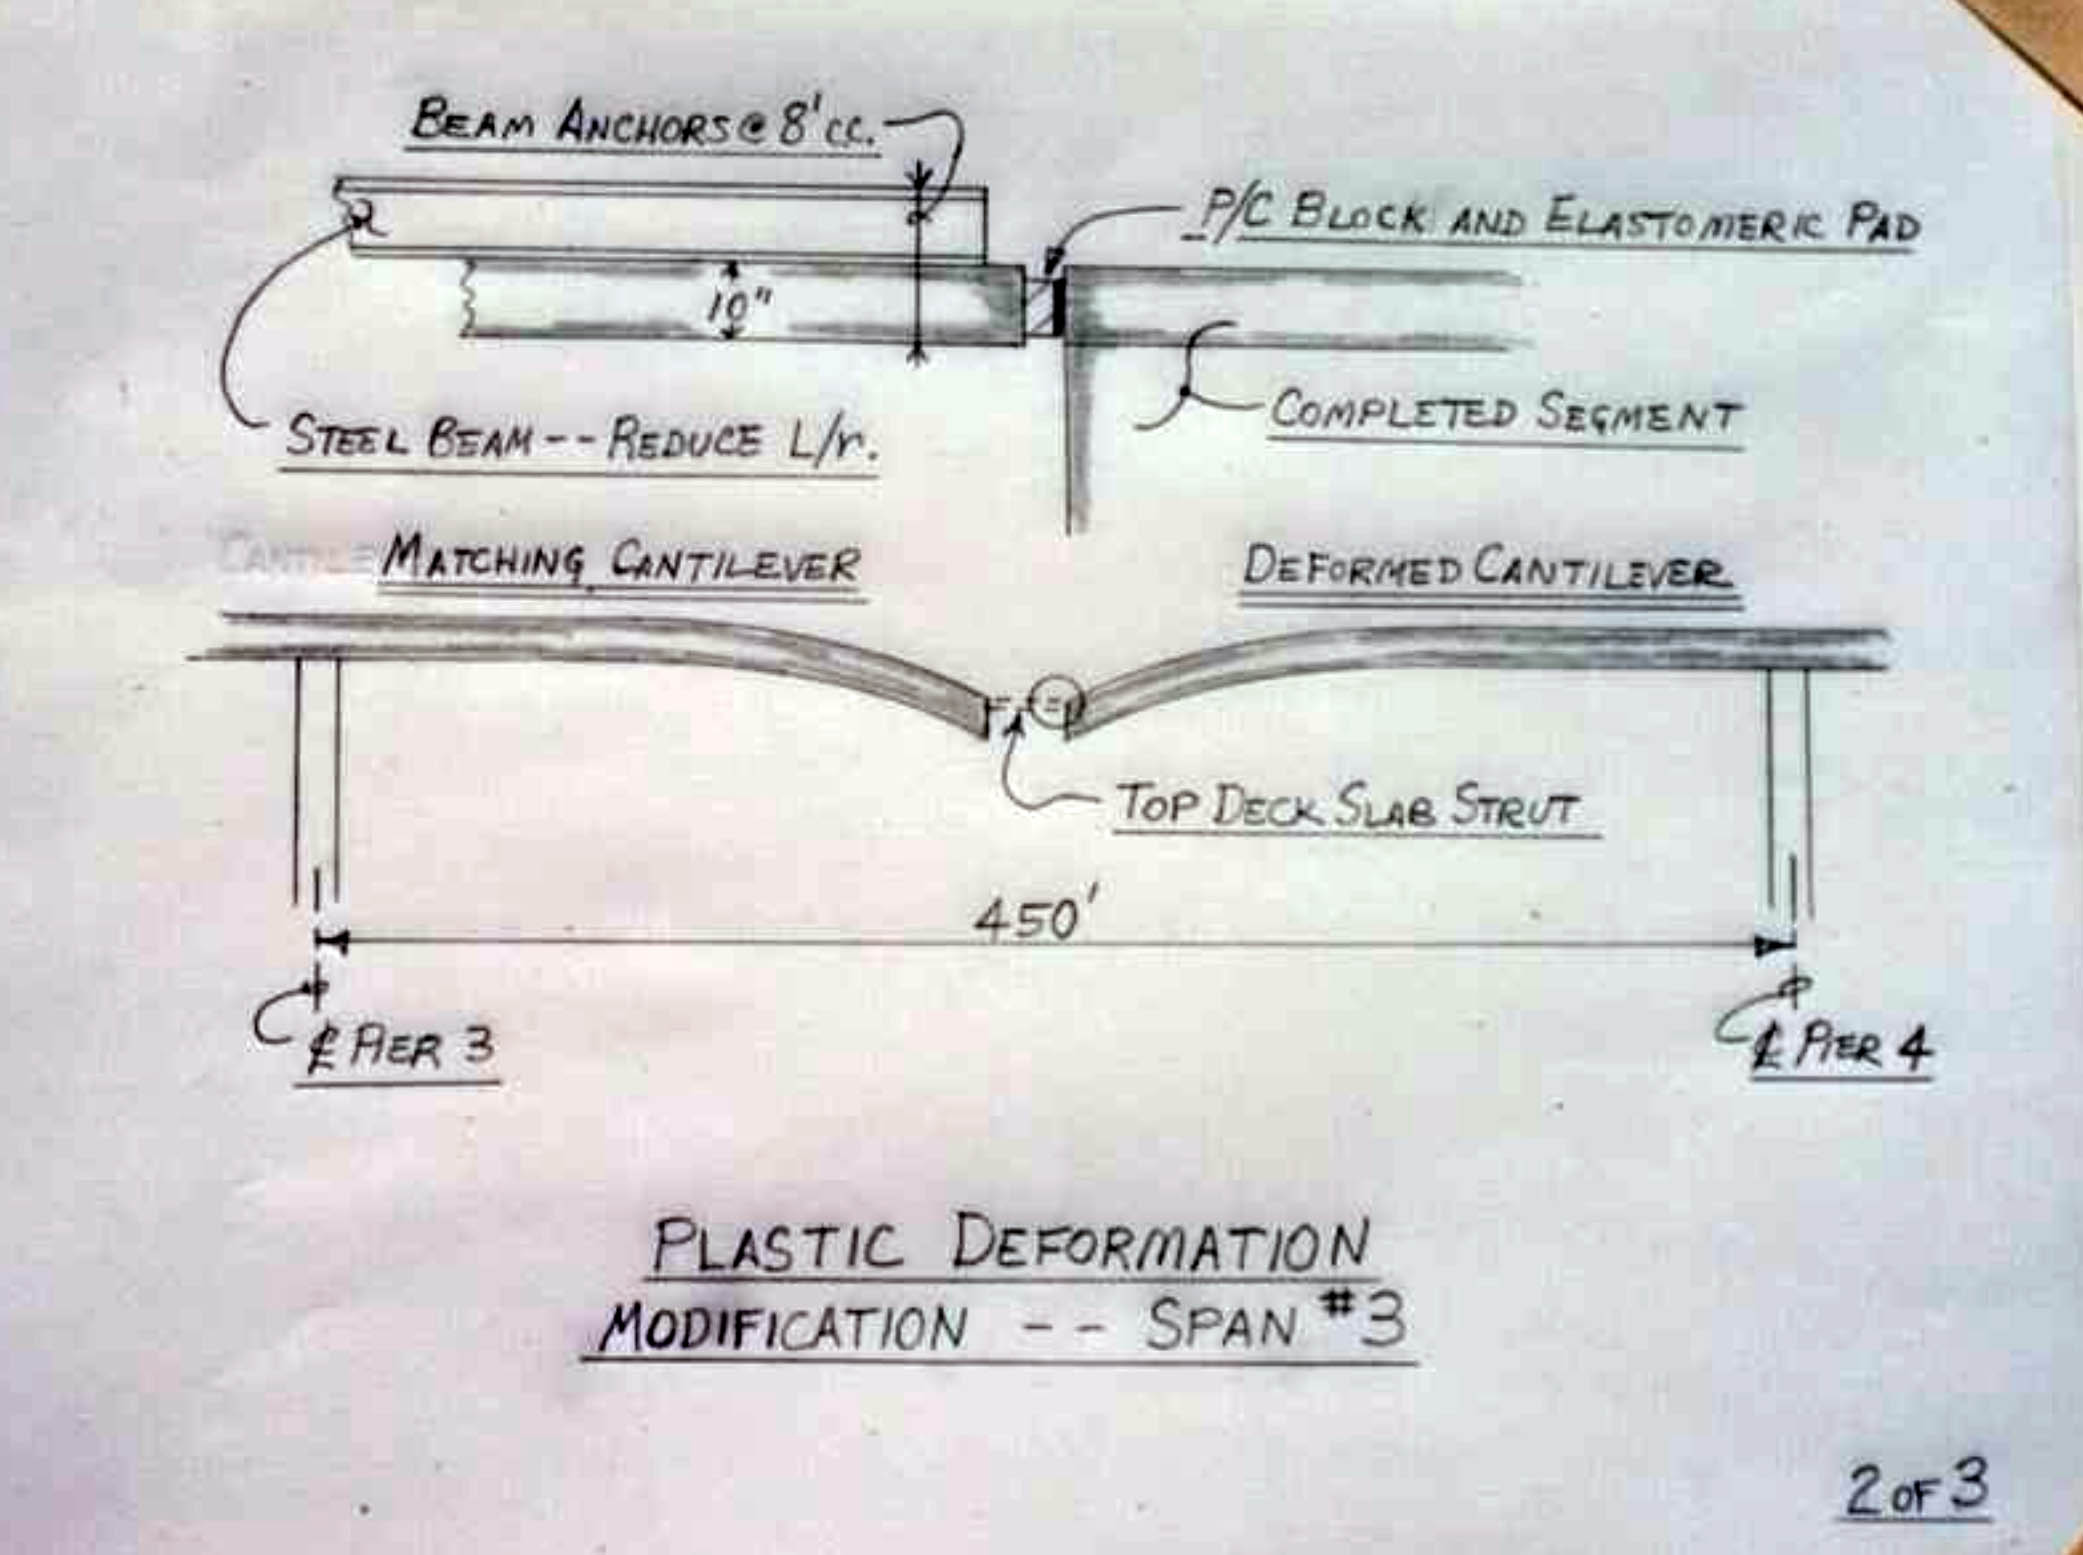 BEAM ANCHORS @ 8' CC.
P/C BLOCK AND ELASTOMERIC PAD
10"
STEEL BEAM -- REDUCE L/r.
COMPLETED SEGMENT
MATCHING CANTILEVER
DEFORMED CANTILEVER
TOP DECK SLAB STRUT
450'
℄ PIER 3
℄ PIER 4
PLASTIC DEFORMATION
MODIFICATION -- SPAN #3
2 OF 3